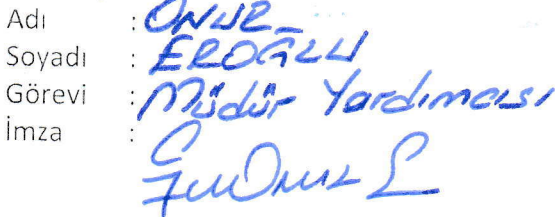 Adı : ONUR
Soyadı : EROĞLU
Görevi : Müdür Yardımcısı
İmza :